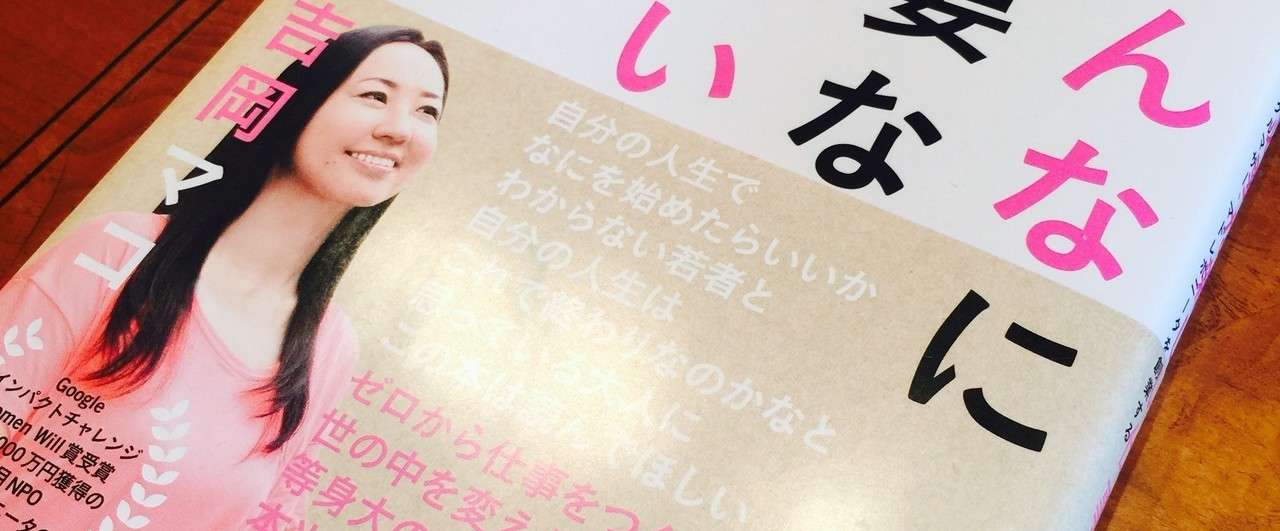 んなに
な
い
吉岡マコ
自分の人生で
なにを始めたらいいか
わからない若者と
自分の人生は
これで終わりなのかなと
思っている大人に
この本 ほしい
ゼロから仕事をつく
世の中を変え
等身大の
本
Google
インパクトチャレンジ
men Will賞受賞
000万円獲得の
目NPO